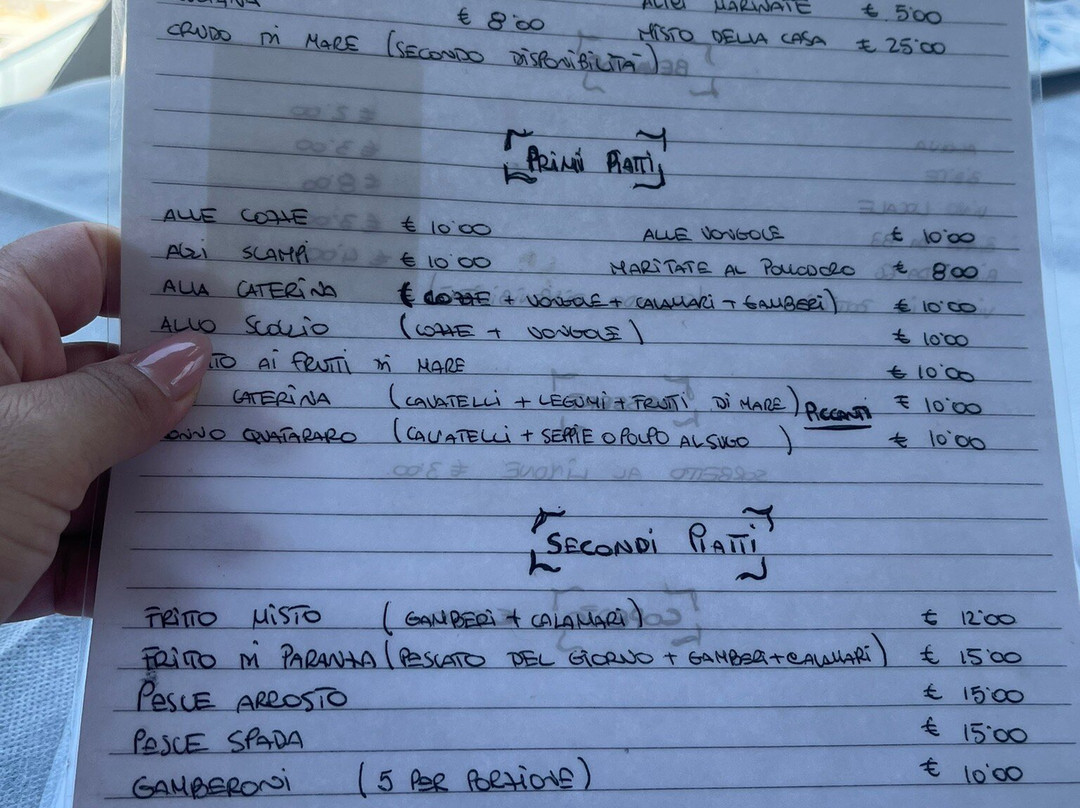 ALICI MARINATE € 5'00
€ 8'00 MISTO DELLA CASA € 25'00
CRUDO DI MARE (SECONDO DISPONIBILITÀ)
PRIMI PIATTI
ALLE COZZE € 10'00 ALLE VONGOLE € 10'00
AGLI SCAMPI € 10'00 MARITATE AL POMODORO € 8'00
ALLA CATERINA (COZZE + VONGOLE + CALAMARI + GAMBERI) € 10'00
ALLO SCOGLIO (COZZE + VONGOLE) € 10'00
TO AI FRUTTI DI MARE € 10'00
CATERINA (CAVATELLI + LEGUMI + FRUTTI DI MARE) PICCANTI € 10'00
ONNO QUATARARO (CAVATELLI + SEPPIE O POLPO AL SUGO) € 10'00
SORBETTO AL LIMONE € 3'00
SECONDI PIATTI
FRITTO MISTO (GAMBERI + CALAMARI) € 12'00
FRITTO DI PARANZA (PESCATO DEL GIORNO + GAMBERI + CALAMARI) € 15'00
PESCE ARROSTO € 15'00
PESCE SPADA € 15'00
GAMBERONI (5 PER PORZIONE) € 10'00